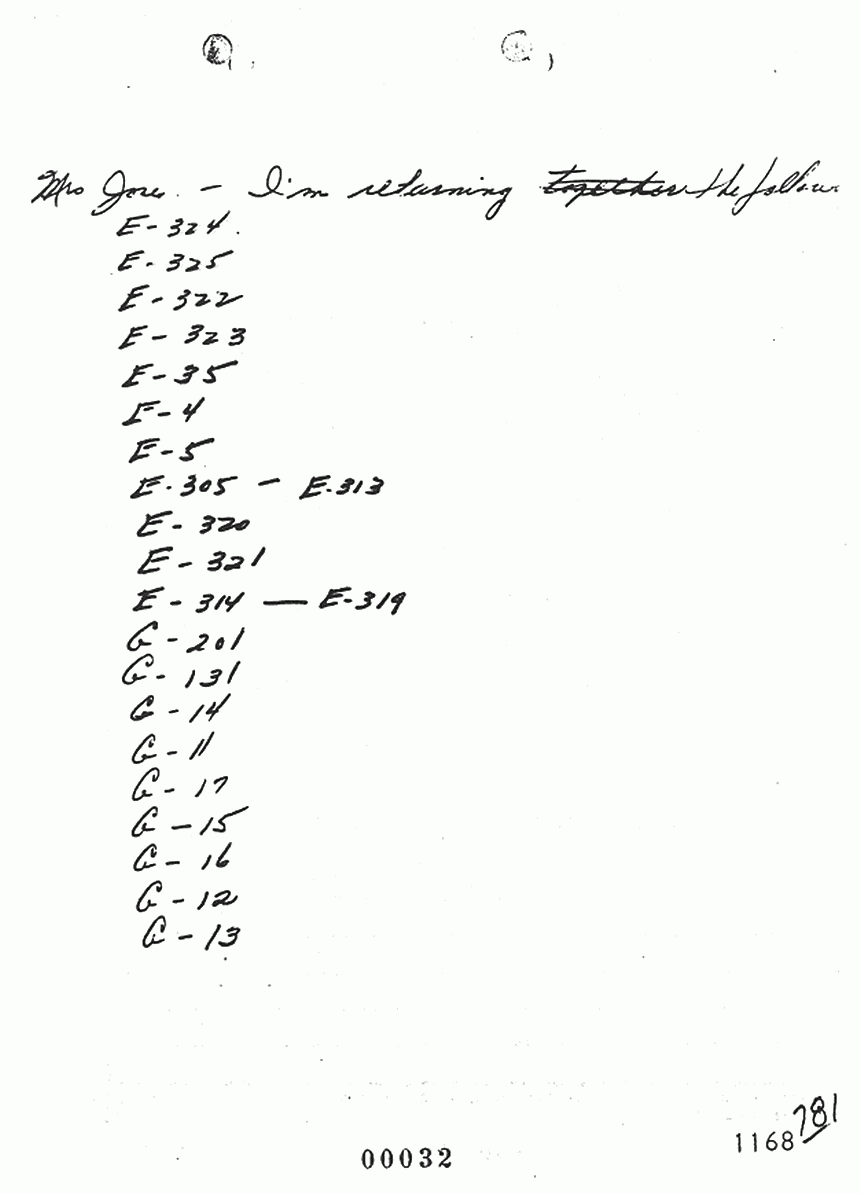 Mrs Jones. - I'm returning together the follow
E-324.
E-325
E-322
E-323
E-35
E-4
E-5
E-305 - E-313
E-320
E-321
E-314 — E-319
G-201
G-131
G-14
G-11
G-17
G-15
G-16
G-12
G-13
781
1168
00032